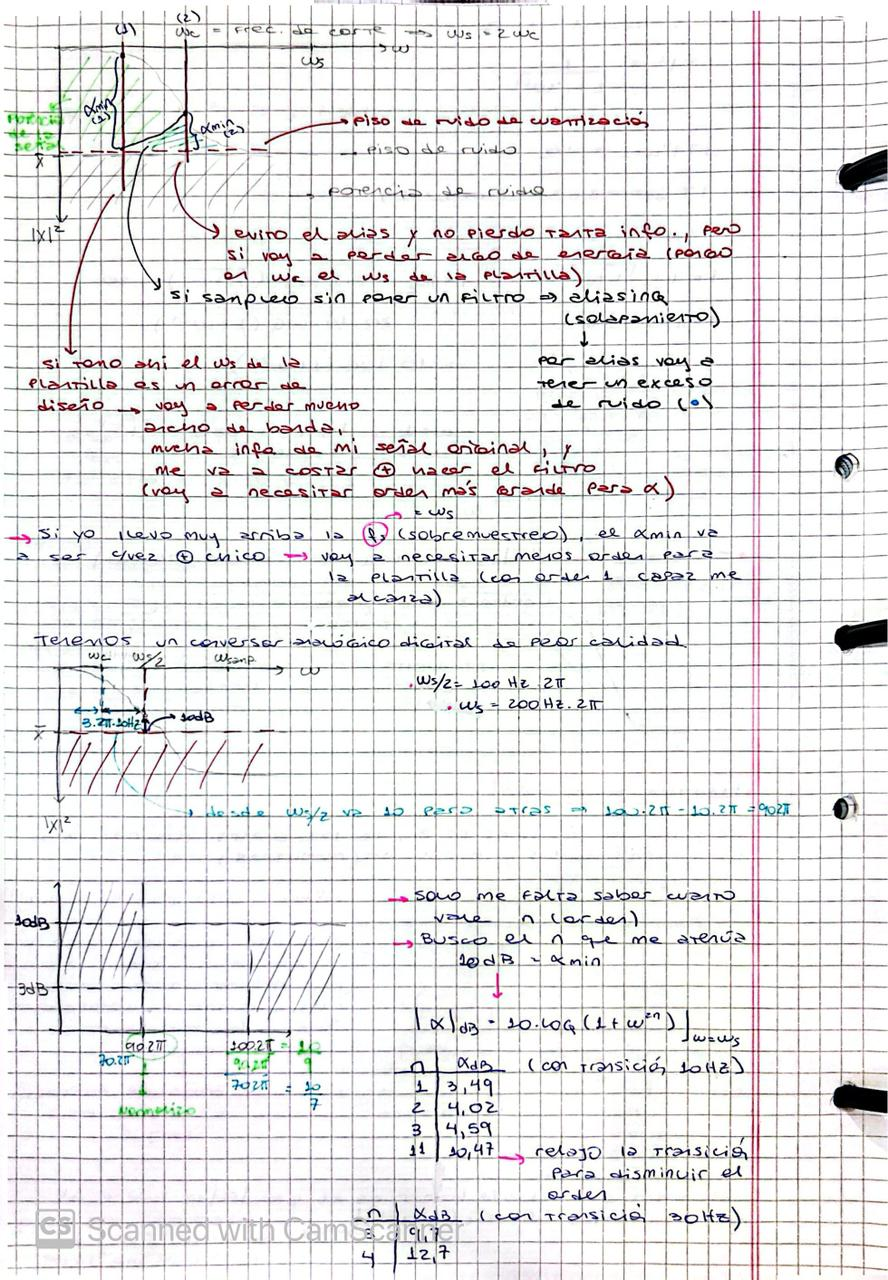 (1)
(2)
ωc = frec. de corte → ωs = 2ωc
ωs
ω
Potencia
de la
señal
αmin
(1)
αmin
(2)
piso de ruido de cuantización
piso de ruido
potencia de ruido
|X|²
evito el alias y no pierdo tanta info., pero
si voy a perder algo de energía (pongo
en ωc el ωs de la plantilla)
si sampleo sin poner un filtro ⇒ aliasing
(solapamiento)
↓
por alias voy a
tener un exceso
de ruido (•)
si tomo ahí el ωs de la
plantilla es un error de
diseño → voy a perder mucho
ancho de banda,
mucha info de mi señal original, y
me va a costar ⊕ hacer el filtro
(voy a necesitar orden más grande para α)
= ωs
→ Si yo llevo muy arriba la fs (sobremuestreo), el αmin va
a ser c/vez ⊕ chico → voy a necesitar menos orden para
la plantilla (con orden 1 capaz me
alcanza)
Tenemos un conversor analógico digital de peor calidad.
ωc ωs/2 ωsamp. ω
. ωs/2 = 100 Hz . 2π
. ωs = 200 Hz . 2π
3.2π.10Hz
→ 10dB
|X|²
→ desde ωs/2 va 10 para atras ⇒ 100.2π - 10.2π = 90 2π
→ Solo me falta saber cuanto
vale n (orden)
→ Busco el n que me atenúa
10dB = αmin
10dB
3dB
|α|dB = 10.log (1 + ω²ⁿ) ]ω=ωs
90 2π
70.2π
100 2π = 10
90 2π 9
70 2π = 10
7
Normalizo
n | αdB (con transición 10Hz)
1 | 3,49
2 | 4,02
3 | 4,59
11 | 10,47 → relajo la transición
para disminuir el
orden
n | αdB (con transición 30Hz)
3 | 9,7
4 | 12,7
CS Scanned with CamScanner